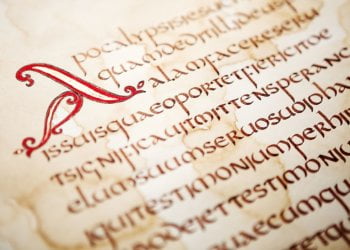 Apocalypsisiesu
quamdeditillideu
alamfacereseru
issuisquaeoportetfiericitoe
tsignificauitmittensperanc
elumsuumseruosuoioha
iquitestimoniumperhi
bodeiettestimoniu
uaecumqu